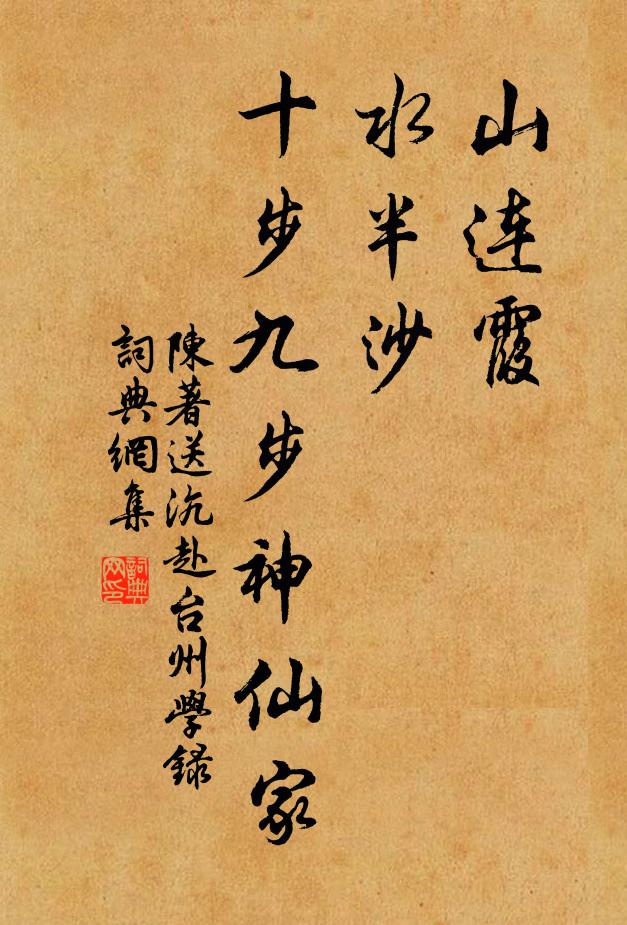 山連霞
水半沙
十步九步神仙家
陳著送沆赴台州學録
詞典網集
詞典網印